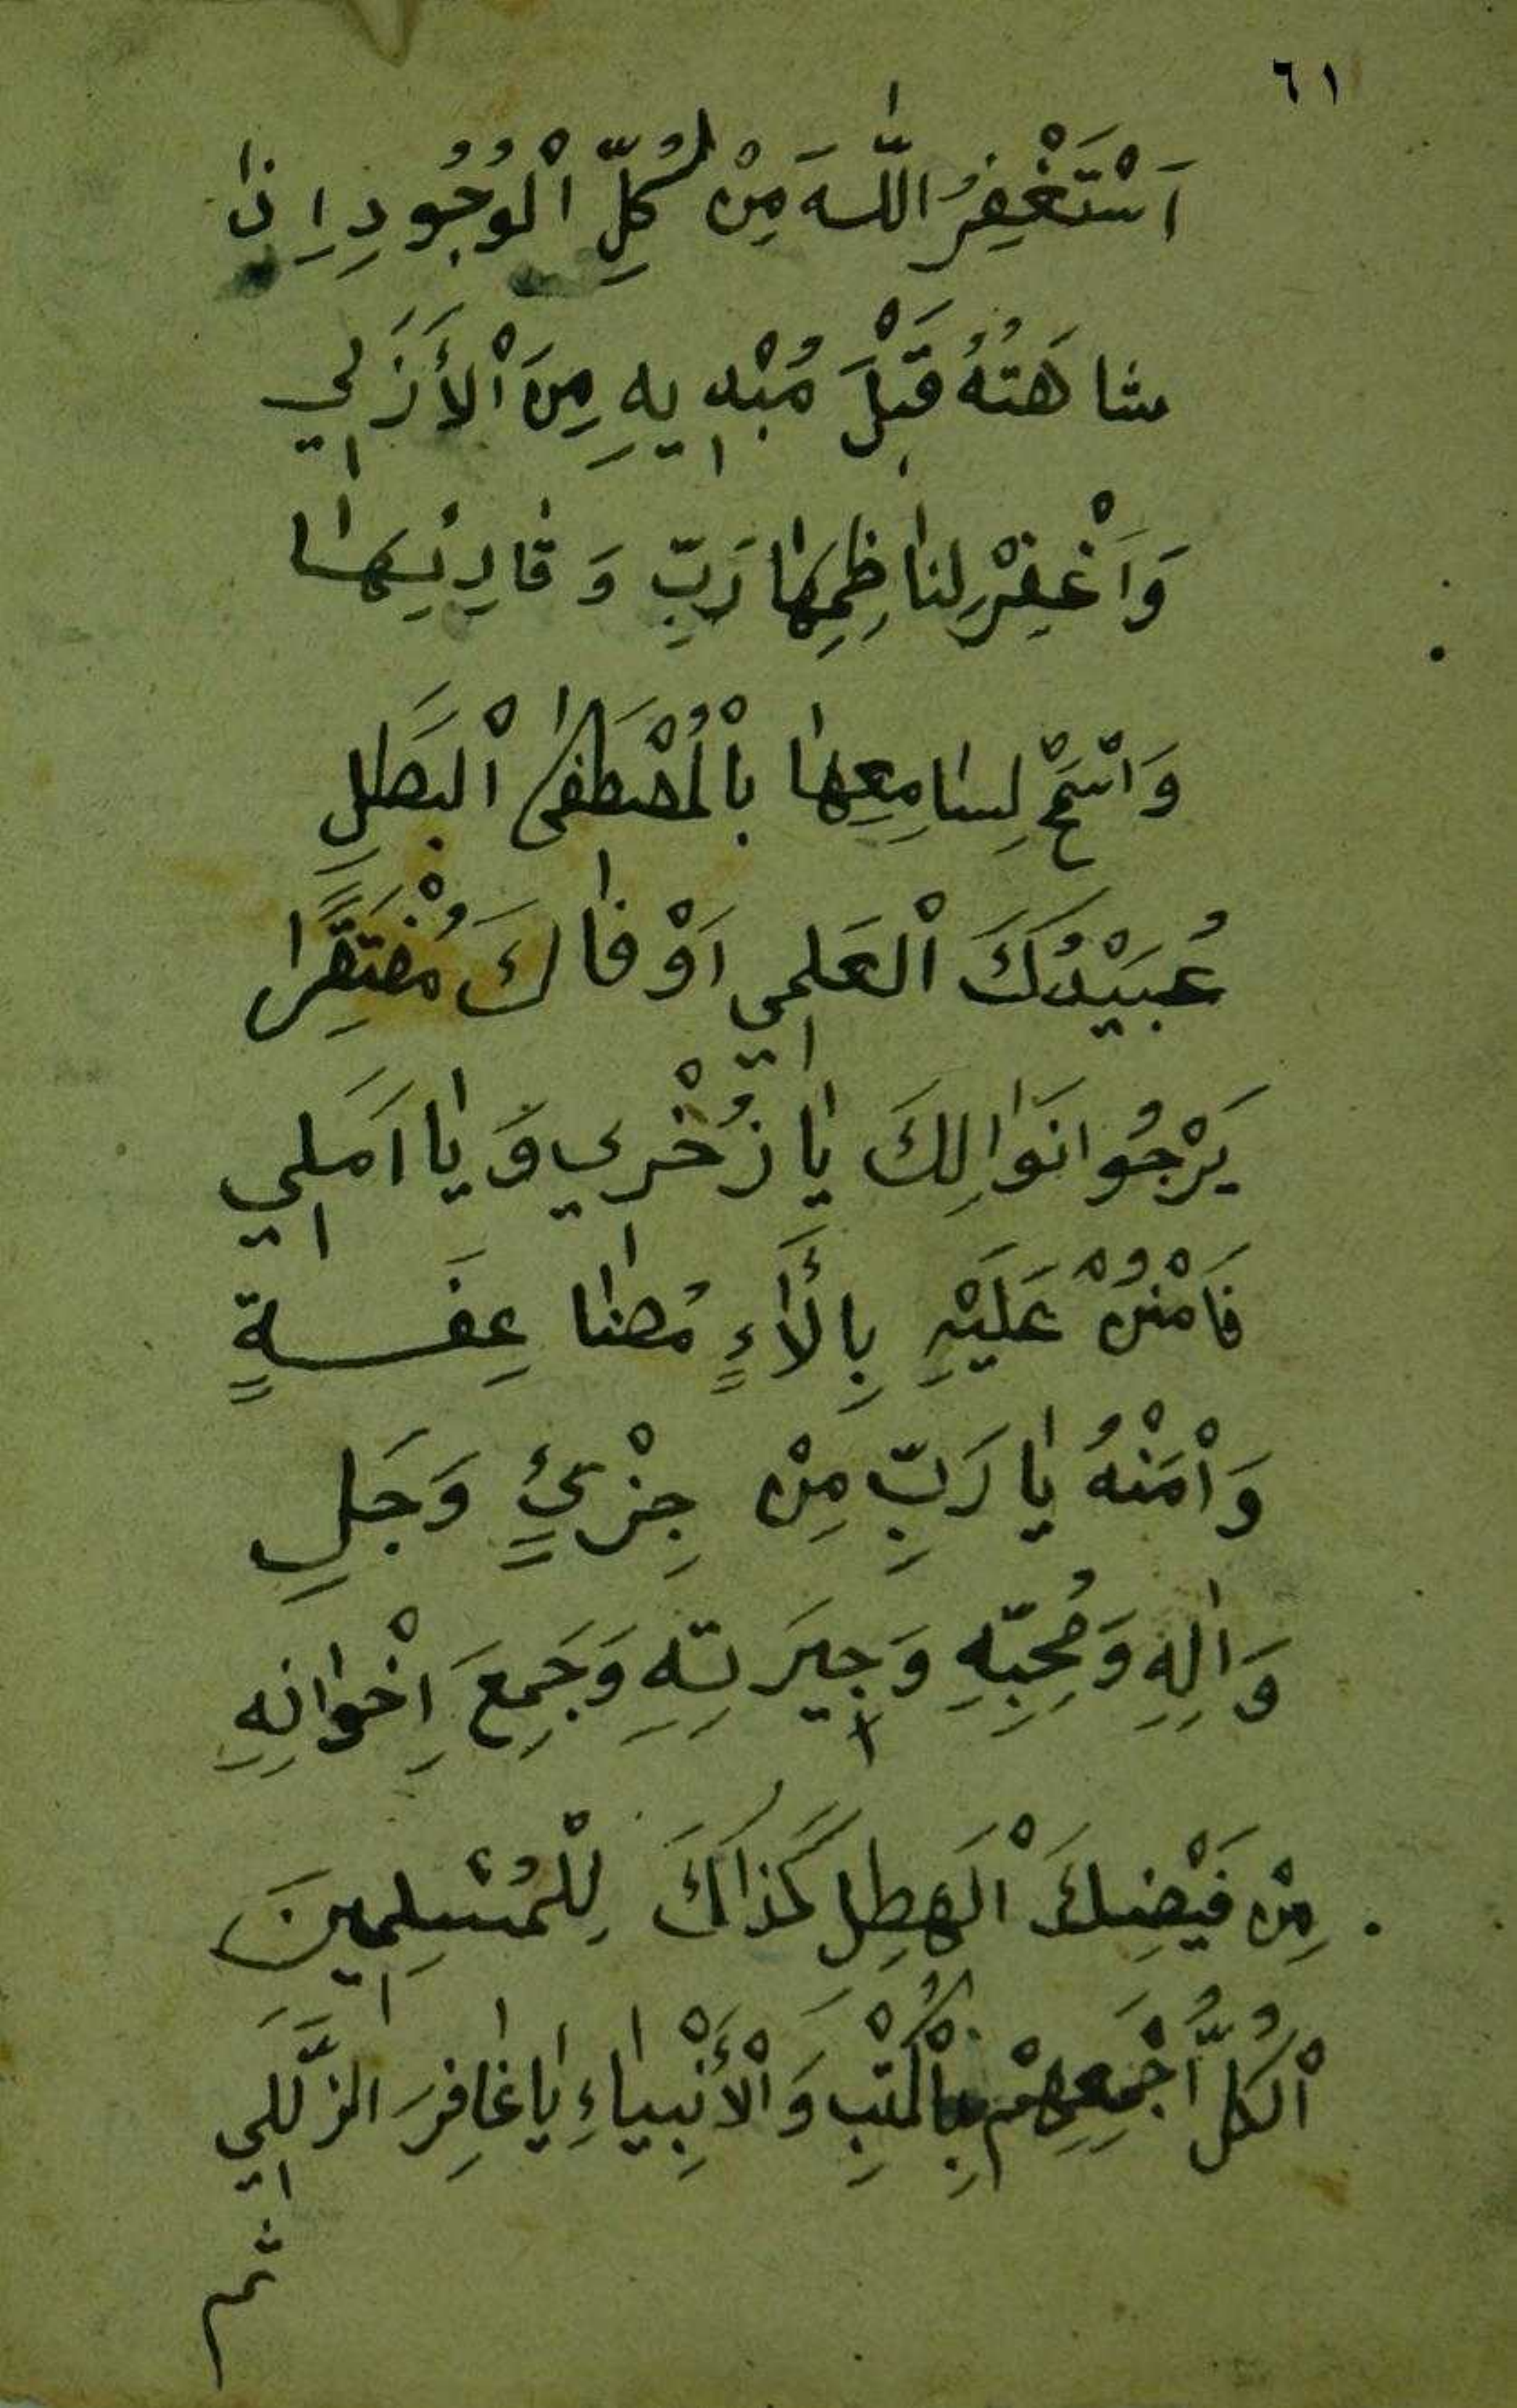 ٦١
اَسْتَغْفِرُ اللّٰهَ مِنْ كُلِّ اْلوُجُودِ اِذٰا
شاهَتُهُ قَبْلَ مُبْدِيهِ مِنَ اْلأَزَلِي
وَاَغْفِرْ لِنٰاظِمِهٰا رَبِّ وَ قٰارِئِهٰا
وَاسْمَحْ لِسٰامِعِهٰا بِاْلمُصْطَفىٰ اْلبَطَلِ
عُبَيْدُكَ اْلعَلَمِي اَوْفٰاكَ مُفْتَقِرًا
يَرْجُوا نَوٰالِكَ يٰا ذُخْرِي وَ يٰا اَمَلِي
فَامْنُنْ عَلَيْهِ بِألَاٰءٍ مُضٰاعِفَةٍ
وَاْمَنْهُ يٰا رَبِّ مِنْ جِزْئٍ وَجَلِ
وَاٰلِهِ وَمُحِبِّهِ وَجِيَرتِهِ وَجَمِعَ اِخْوٰانِهِ
مِنْ فَيْضِكَ اْلَهَطِلِ كَذٰاكَ لِلْمُسْلِمِينَ
اْلكُلُّ أَجْمَعِهِمْ بِاْلكُتْبِ وَاْلأَنْبِيٰاءِ يٰا غٰافِرَ الزَّلَلِي
ثم